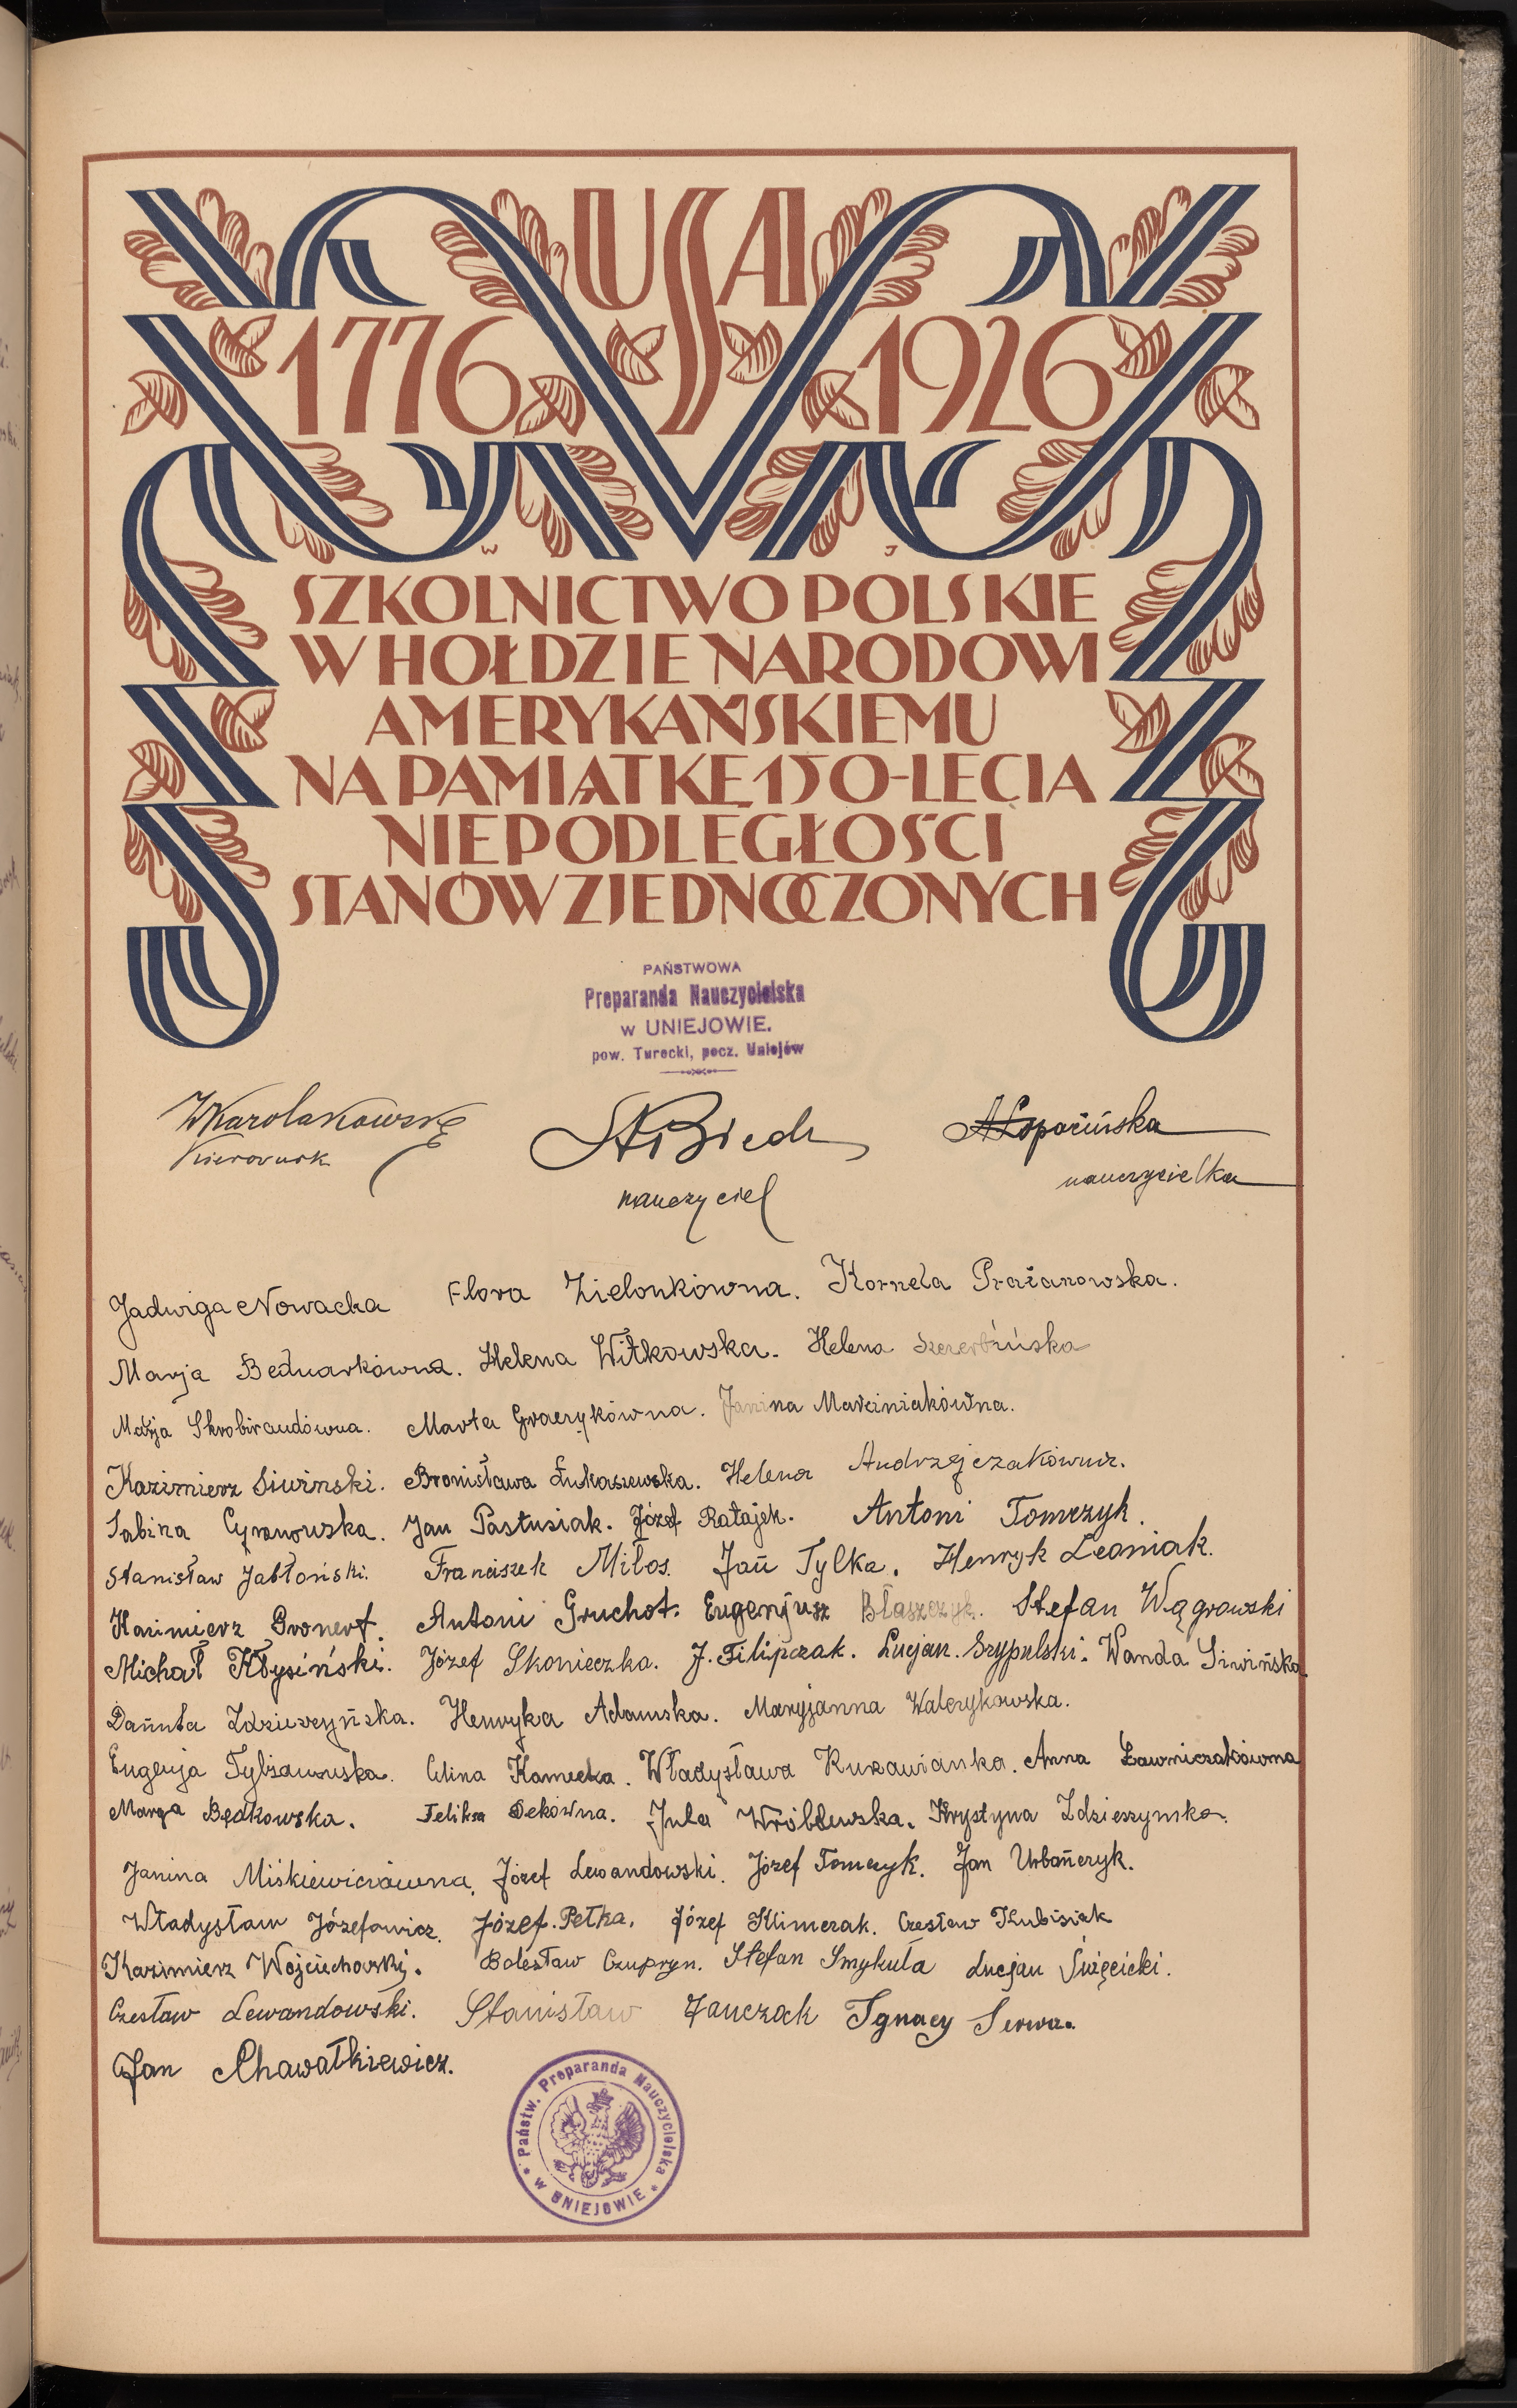 USA
1776 1926
W J
SZKOLNICTWO POLSKIE
W HOŁDZIE NARODOWI
AMERYKAŃSKIEMU
NA PAMIĄTKĘ 150-LECIA
NIEPODLEGŁOŚCI
STANÓW ZJEDNOCZONYCH
PAŃSTWOWA
Preparanda Nauczycielska
w UNIEJOWIE.
pow. Turecki, pocz. Uniejów
WKarolakowski StBiech ALopacińska
Kierownik nauczyciel nauczycielka
Jadwiga Nowacka Flora Zielonkówna. Kornela
Marja Bednarkówna. Helena Witkowska. Helena Szczerbińska
Marja Marta Graczykówna. Janina Marciniakówna.
Kazimierz Siwinski. Bronisława Łukaszewska. Helena Andrzejczakówna.
Sabina Cyranowska. Jan Pastusiak. Józef Ratajek. Antoni Tomczyk.
Stanisław Jabłoński. Franciszek Miłos. Jan Tylka. Henryk Leoniak.
Kazimierz Gronert. Antoni Gruchot. Eugenjusz Błaszczyk. Stefan Wągrowski
Michał Kłysiński. Józef Skonieczka. J. Filipczak. Lucjan. Szypulski. Wanda Siwińska
Danuta Zdzieszyńska. Henryka Adamska. Maryjanna Walerykowska.
Eugenja Celina Kamecka. Władysława Kurawianka. Anna Ławniczakówna
Marya Będkowska. Feliksa Dekówna. Jula Wróblewska. Krystyna Zdzieszynska.
Janina Miśkiewiczówna. Józef Lewandowski. Józef Tomczyk. Jan Urbańczyk.
Władysław Józefowicz. Józef. Petka. Józef Klimczak. Czesław Kubisiak
Kazimierz Wojciechowski. Bolesław Czupryn. Stefan Smykuła Lucjan Święcicki.
Czesław Lewandowski. Stanisław Janczak Ignacy Serwa.
Jan Chawałkiewicz.
* Państw. Preparanda Nauczycielska * w UNIEJOWIE